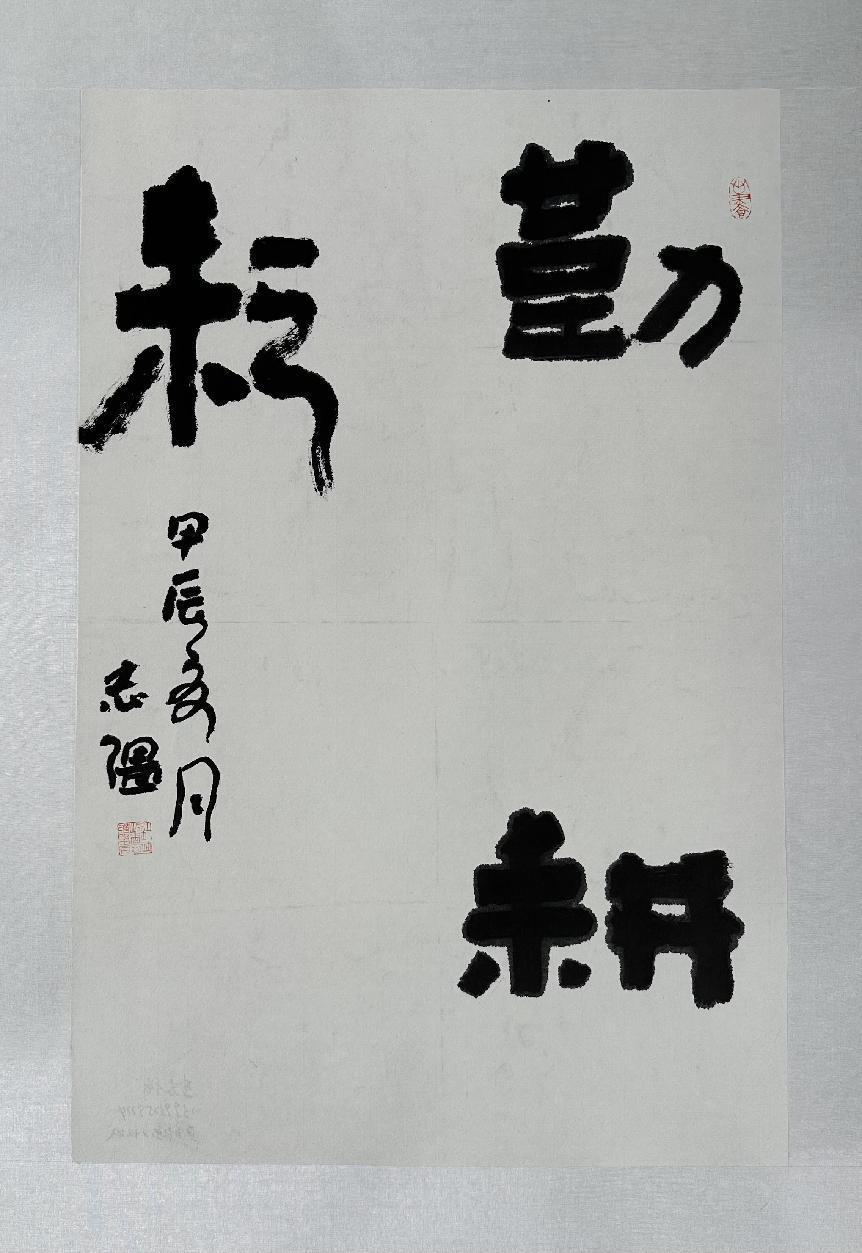 勤
耕
耘
甲辰夏月
志强